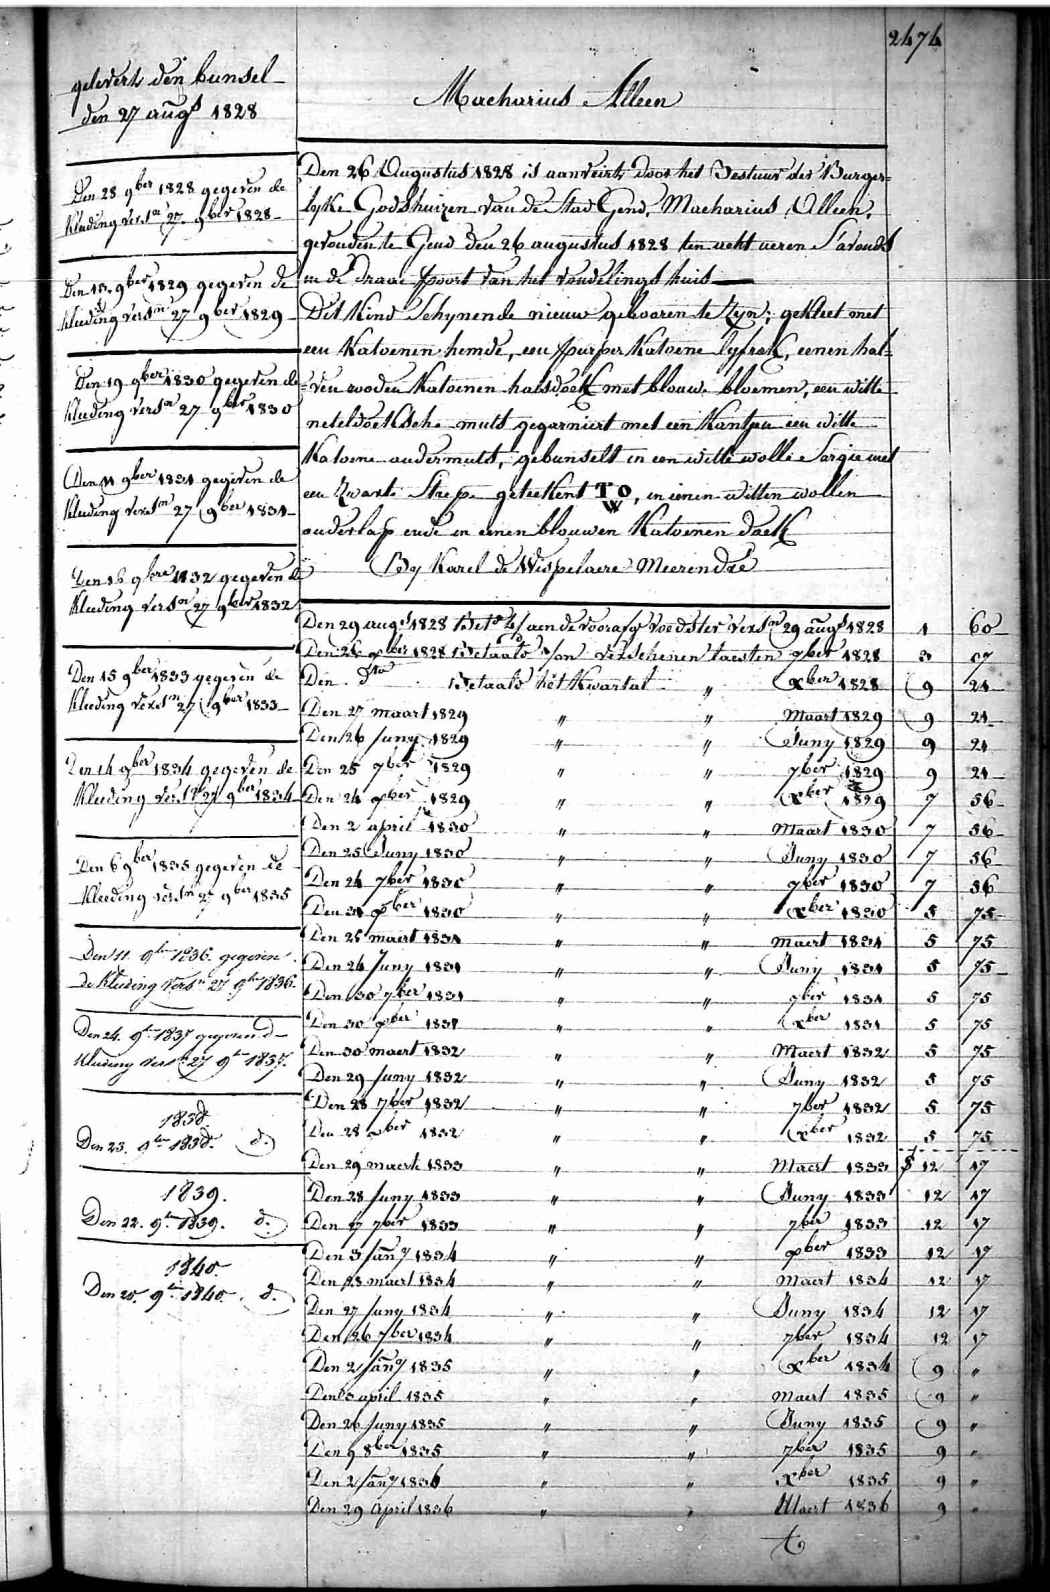 2474
gelevert den bunsel
den 27 augs 1828
Den 28 9ber 1828 gegeven de
kleeding versn 27 9ber 1828
Den 15 9ber 1829 gegeven de
kleeding versn 27 9ber 1829
Den 19 9ber 1830 gegeven de
kleeding versn 27 9ber 1830
Den 11 9ber 1831 gegeven de
kleeding versn 27 9ber 1831
Den 16 9bre 1832 gegeven de
kleeding versn 27 9ber 1832
Den 15 9ber 1833 gegeven de
kleeding versn 27 9ber 1833
Den 14 9ber 1834 gegeven de
kleeding versn 27 9ber 1834
Den 6 9ber 1835 gegeven de
kleeding versn 27 9ber 1835
Den 11. 9br 1836. gegeven
de kleeding versn 27 9br 1836.
Den 24. 9br 1837 gegeven d
kleeding versn 27 9br 1837.
1838.
Den 23. 9br 1838. d.
1839.
Den 22. 9br 1839. d.
1840.
Den 20. 9br 1840. d.
Macharius Alleen
Den 26 Augustus 1828 is aanveirt door het Bestuur der Burger=
lyke Godshuizen van de Stad Gend, Macharius Alleen,
gevonden te Gend den 26 augustus 1828 ten acht ueren Savonds
in de draai spoort van het vondelings huis
Dit Kind Schynende nieuw gebooren te Zyn; gekleet met
een Katoenen hemde, een purper Katoene lyfrok, eenen hal=
=ven rooden Katoenen halsdoek met blouw bloemen, een witte
neteldoeksche muts gegarniert met een Kantjen een witte
Katoene ondermuts, gebunselt in een witte wolle Sargie met
een Zwarte Strepe geteekent TO W, in eenen witten wollen
onderlap ende in eenen blouwen Katoenen doek
By Karel de Wispelaere Meerendre
Den 29 augs 1828 aen de voedster versn 29 augs 1828 1 60
Den 28 9ber 1828 betaald verschenen 9ber 1828 3 07
Den dto betaald het Kwartal " Xber 1828 9 21
Den 27 maart 1829 " " Maart 1829 9 21
Den 26 Juny 1829 " " Juny 1829 9 21
Den 25 7ber 1829 " " 7ber 1829 9 21
Den 24 Xber 1829 " " Xber 1829 7 56
Den 2 april 1830 " " Maart 1830 7 56
Den 25 Juny 1830 " " Juny 1830 7 56
Den 24 7ber 1830 " " 7ber 1830 7 56
Den 31 Xber 1830 " " Xber 1830 5 75
Den 25 maert 1831 " " Maert 1831 5 75
Den 24 Juny 1831 " " Juny 1831 5 75
Den 30 7ber 1831 " " 7ber 1831 5 75
Den 30 Xber 1831 " " Xber 1831 5 75
Den 30 maert 1832 " " Maert 1832 5 75
Den 29 Juny 1832 " " Juny 1832 5 75
Den 28 7ber 1832 " " 7ber 1832 5 75
Den 28 Xber 1832 " " Xber 1832 5 75
Den 29 maert 1833 " " Maert 1833 12 17
Den 28 Juny 1833 " " Juny 1833 12 17
Den 27 7ber 1833 " " 7ber 1833 12 17
Den 3 Jany 1834 " " Xber 1833 12 17
Den 28 maert 1834 " " Maert 1834 12 17
Den 27 Juny 1834 " " Juny 1834 12 17
Den 26 7ber 1834 " " 7ber 1834 12 17
Den 2 Jany 1835 " " Xber 1834 9 "
Den 3 april 1835 " " Maert 1835 9 "
Den 26 Juny 1835 " " Juny 1835 9 "
Den 9 8ber 1835 " " 7ber 1835 9 "
Den 2 Jany 1836 " " Xber 1835 9 "
Den 29 April 1836 " " Maert 1836 9 "